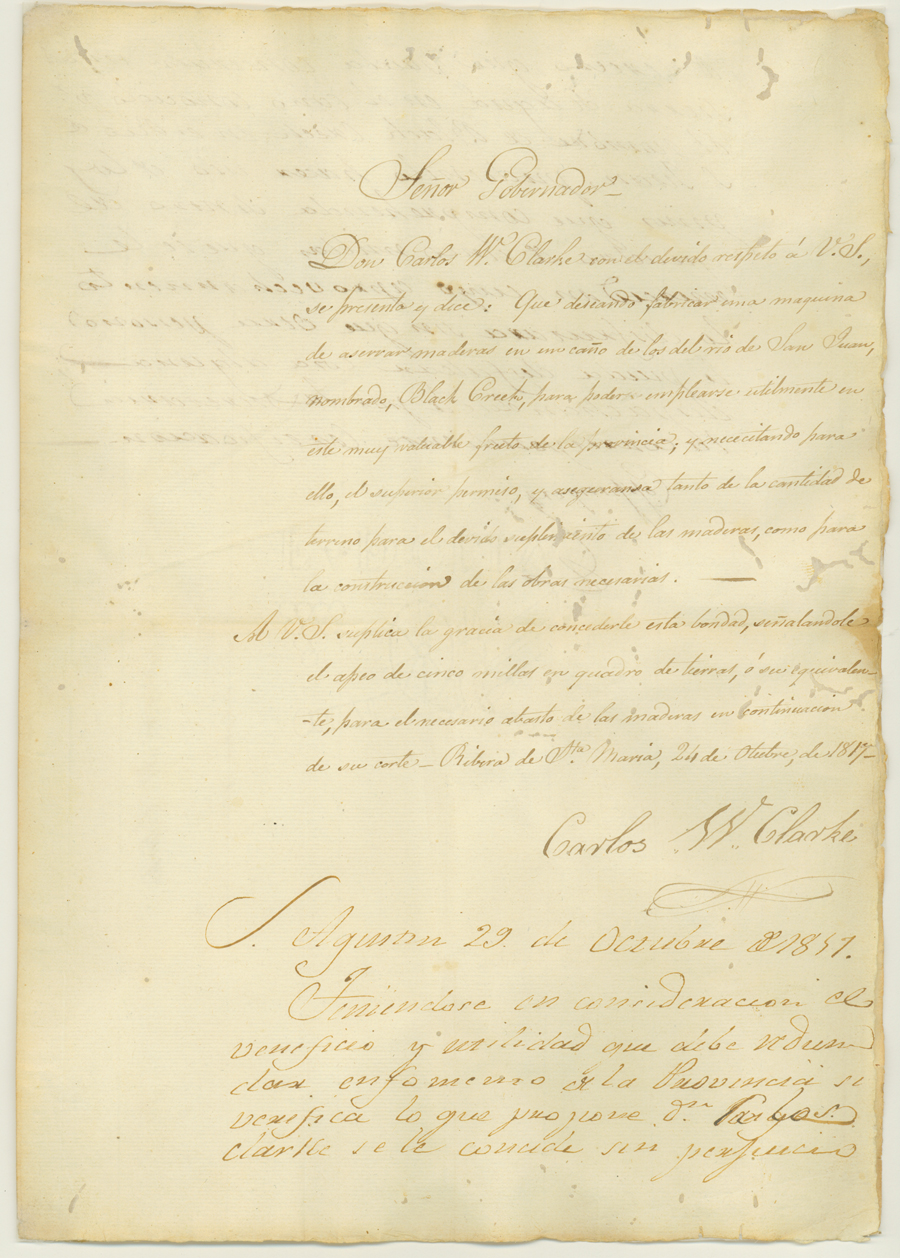 Señor Gobernador
Don Carlos W. Clarke con el devido respeto á V. S.,
se presenta y dice: Que deseando fabricar una maquina
de aserrar maderas en un caño de los del rio de San Juan,
nombrado, Black Creek, para poder emplearse utilmente en
este muy valuable fruto de la provincia; y necesitando para
ello, el superior permiso, y aseguransa tanto de la cantidad de
terreno para el devido suplimiento de las maderas, como para
la construccion de las obras necesarias.
A V. S. suplica la gracia de concederle esta bondad, señalandole
el apeo de cinco millas en quadro de tierras, ó su equivalen-
-te, para el necesario abasto de las maderas en continuacion
de su corte - Ribera de Sta. Maria, 24 de Otubre, de 1817-
Carlos W. Clarke
S. Agustin 29. de Octubre de 1817.
Teniendose en concideracion el
veneficio y utilidad que debe redun
dar en fomento de la Provincia si
verifica lo que propone Dn. Carlos
Clarke se le concede sin perjuicio